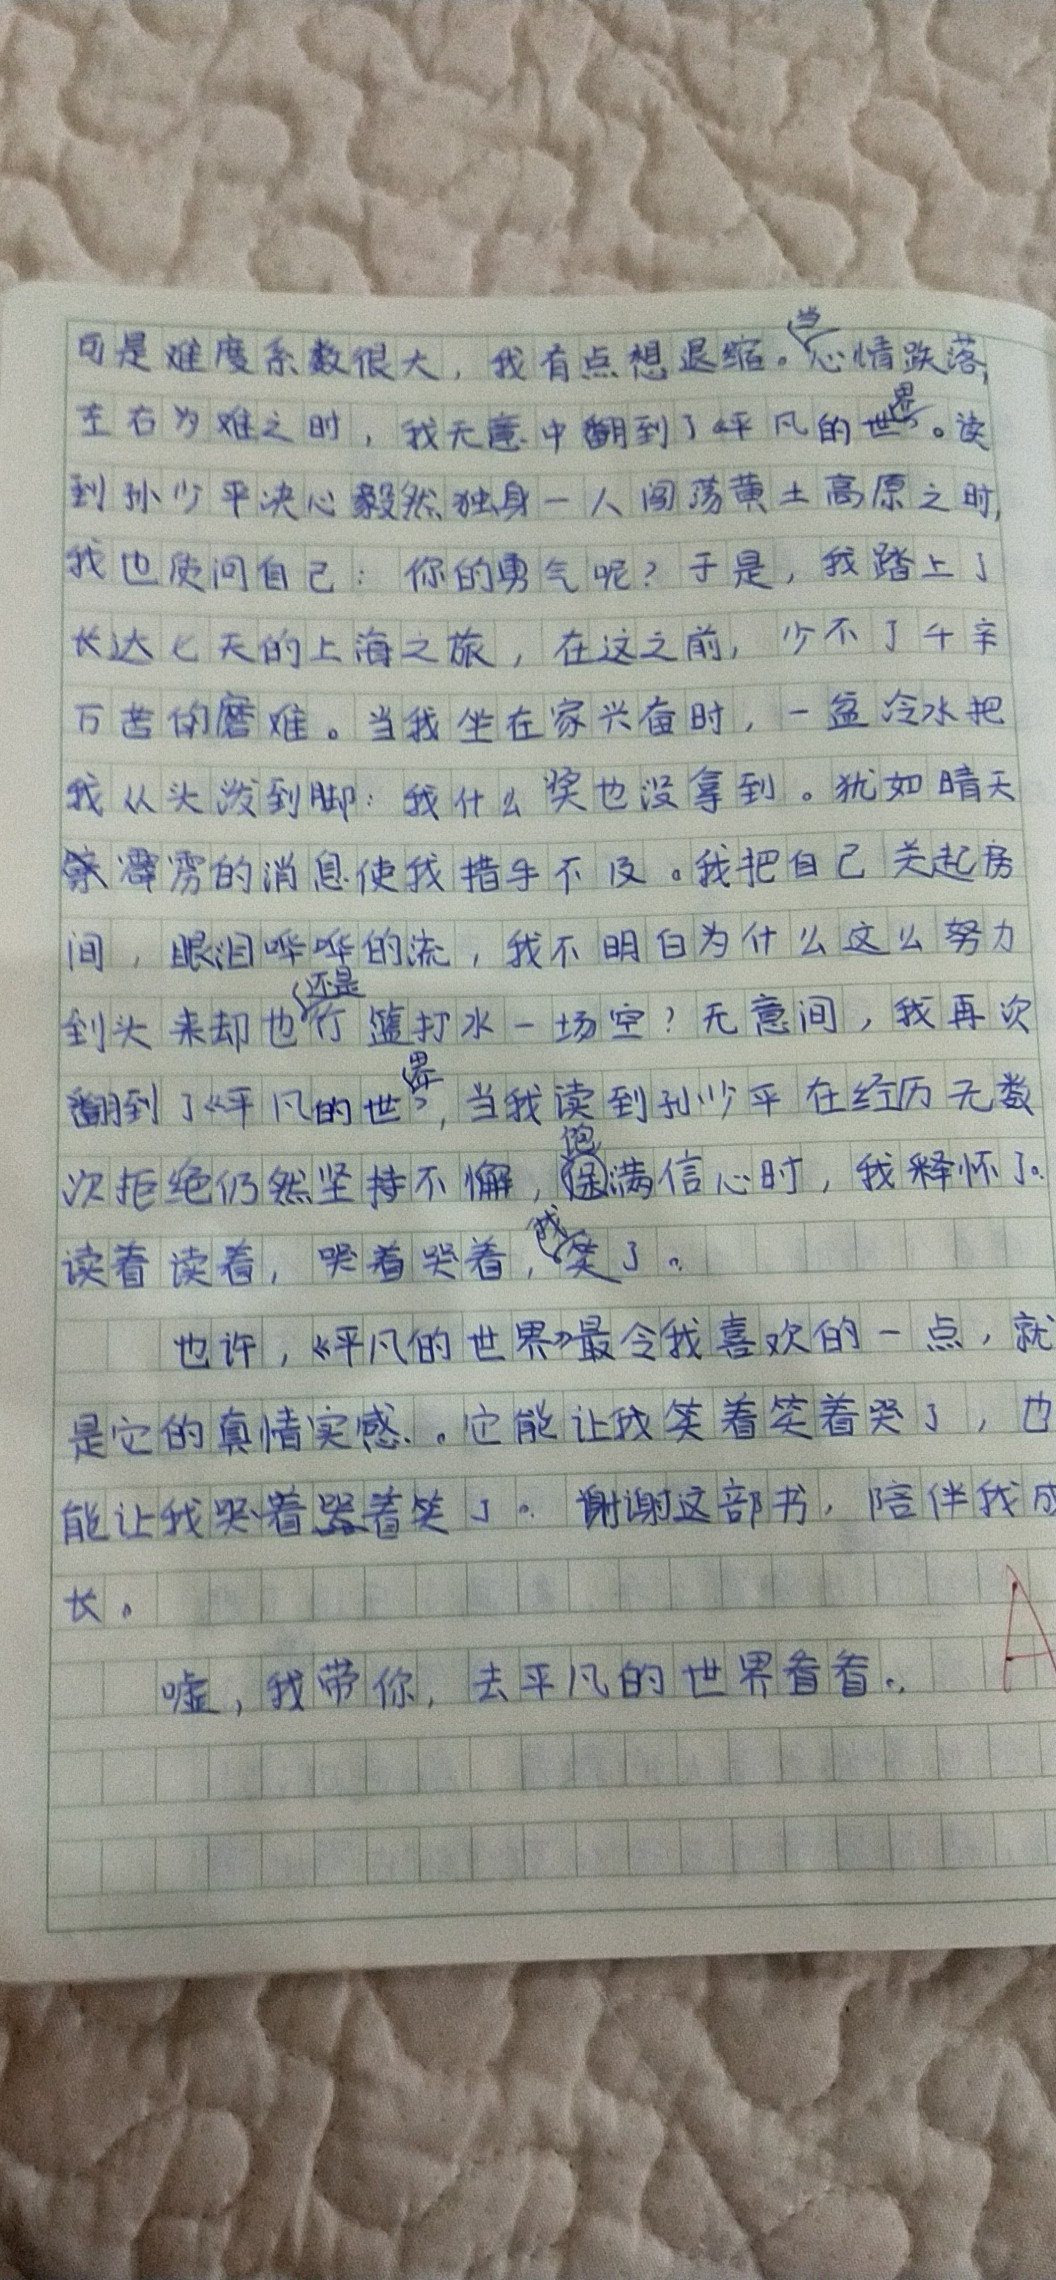 可是难度系数很大，我有点想退缩。当心情跌落，
左右为难之时，我无意中翻到了《平凡的世界》。读
到孙少平决心毅然独身一人闯荡黄土高原之时，
我也质问自己：你的勇气呢？于是，我踏上了
长达七天的上海之旅，在这之前，少不了千辛
万苦的磨难。当我坐在家兴奋时，一盆冷水把
我从头泼到脚：我什么奖也没拿到。犹如晴天
霹雳的消息使我措手不及。我把自己关起房
间，眼泪哗哗的流，我不明白为什么这么努力
到头来却也还是竹篮打水一场空？无意间，我再次
翻到了《平凡的世界》，当我读到孙少平在经历无数
次拒绝仍然坚持不懈，饱满信心时，我释怀了。
读着读着，哭着哭着，我笑了。
也许，《平凡的世界》最令我喜欢的一点，就
是它的真情实感。它能让我笑着笑着哭了，也
能让我哭着哭着笑了。谢谢这部书，陪伴我成
长。
嘘，我带你，去平凡的世界看看。
A